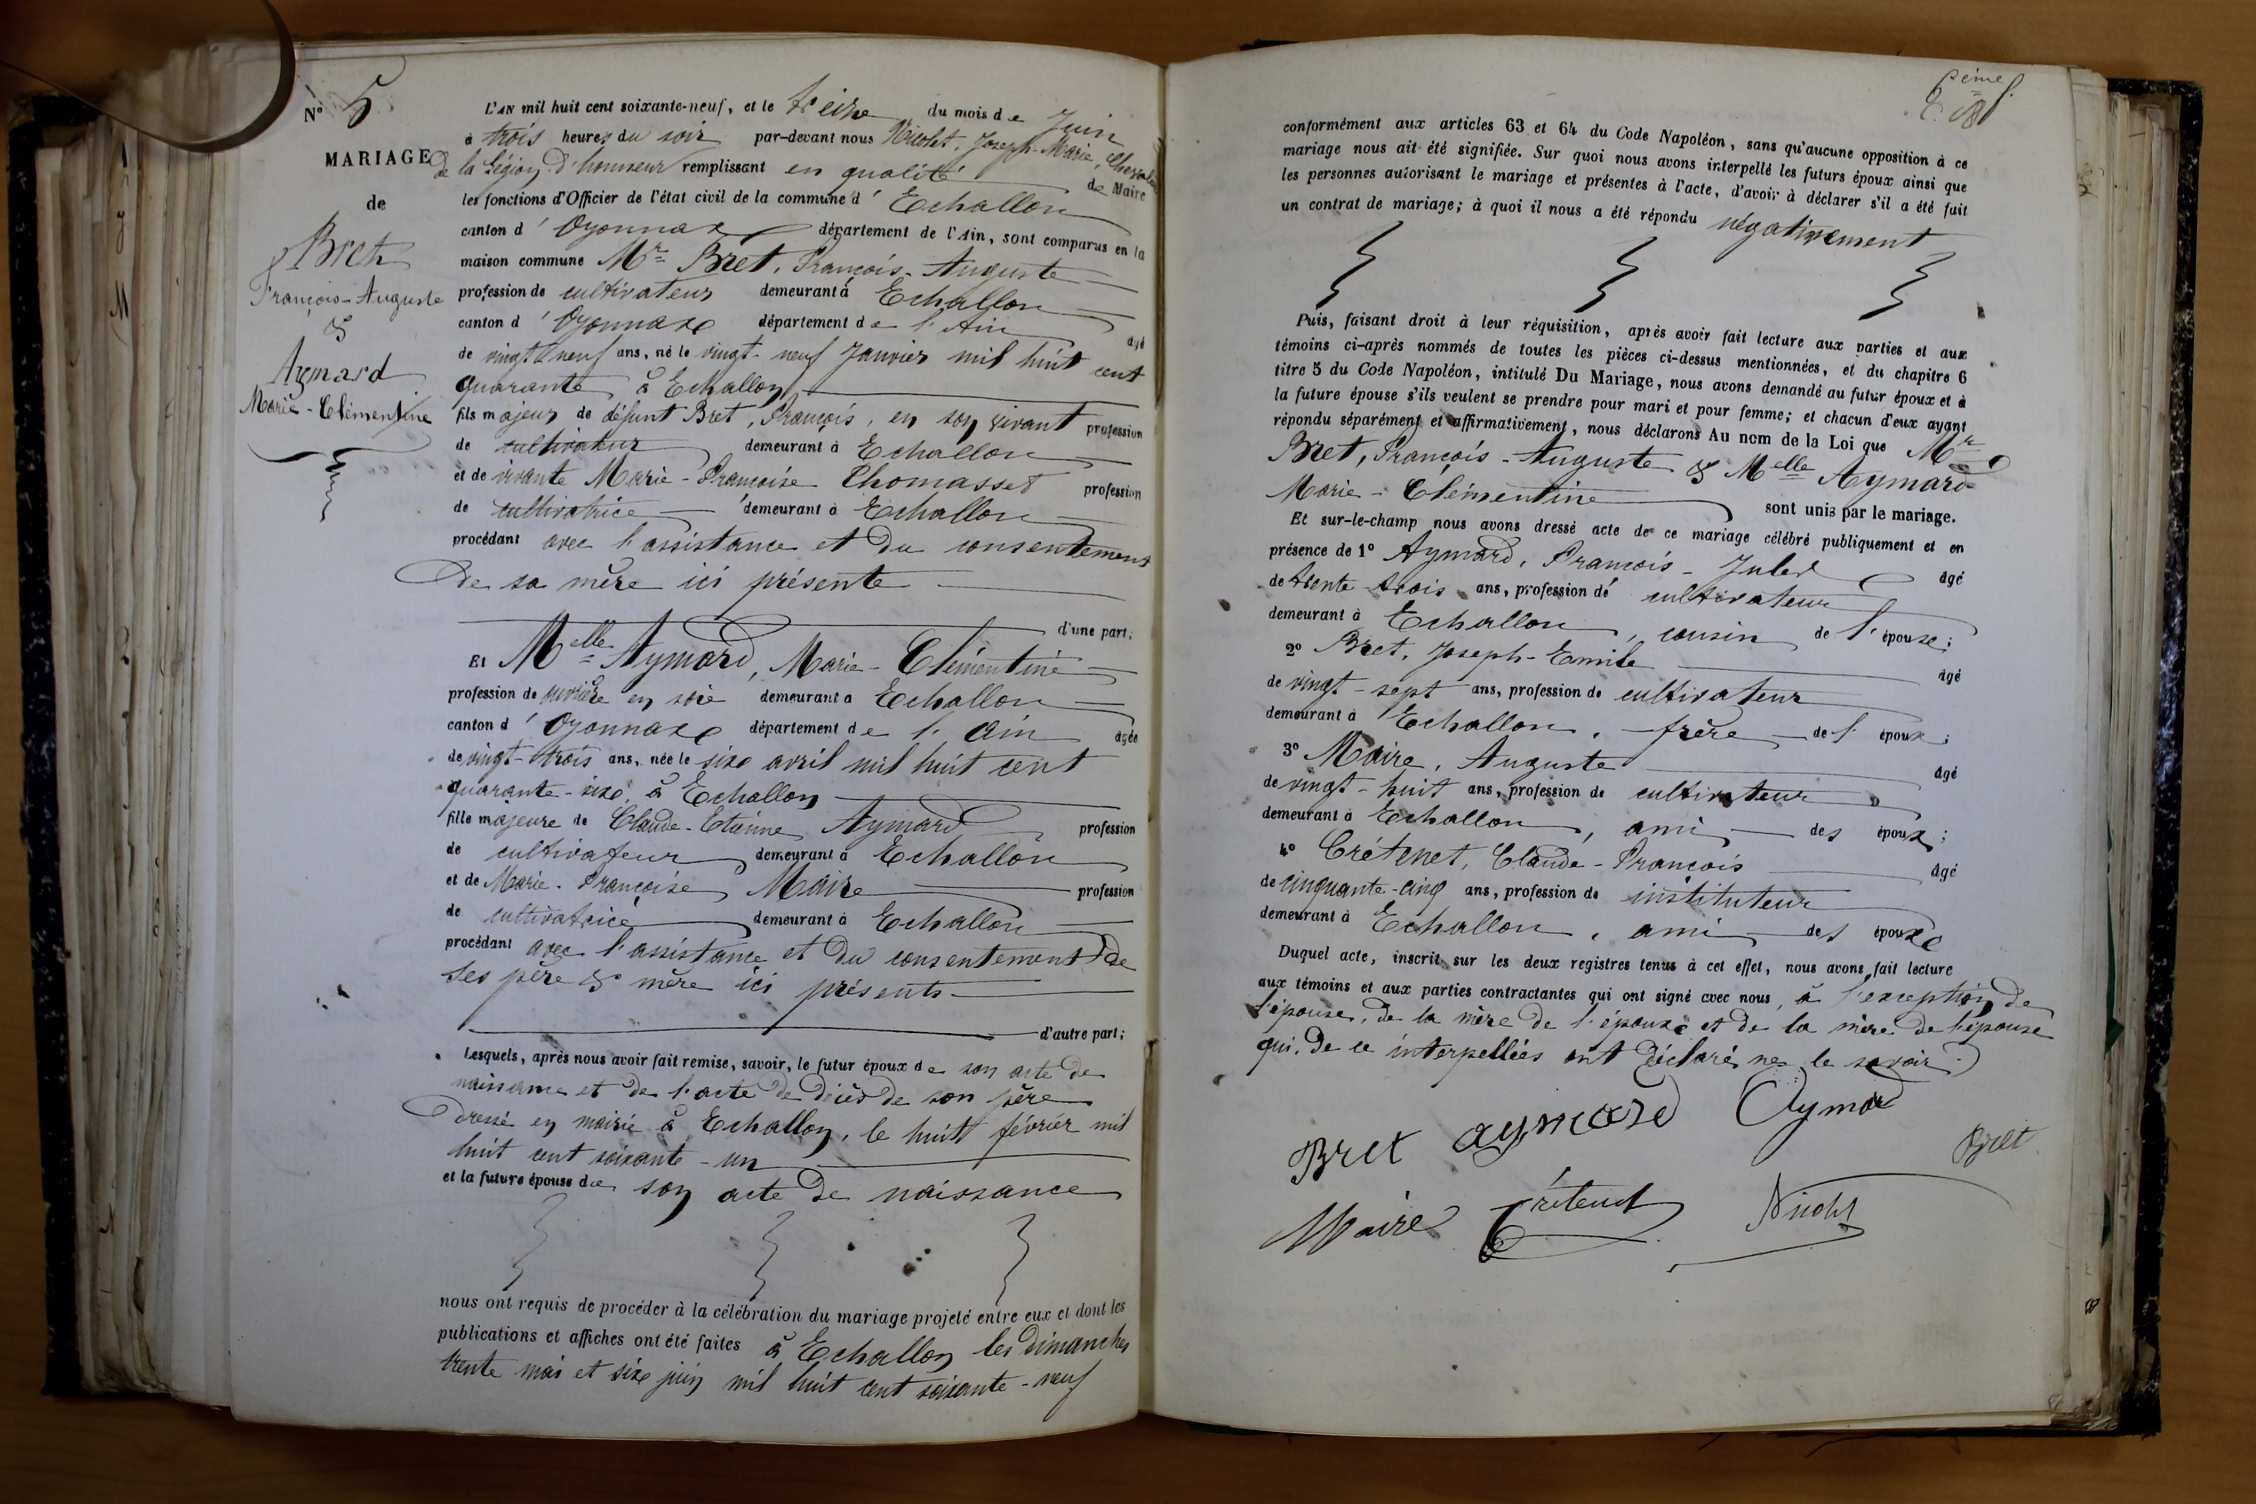 N° 5
MARIAGE
de
Bret
François-Auguste
&
Aymard
Marie-Clémentine
L'AN mil huit cent soixante-neuf, et le treize du mois de Juin
à trois heures du soir par-devant nous Nicolet, Joseph-Marie, Chevalier
de la Légion d'honneur remplissant en qualité de Maire
les fonctions d'Officier de l'état civil de la commune d' Echallon
canton d' Oyonnax département de l'Ain, sont comparus en la
maison commune Mr Bret, François-Auguste
profession de cultivateur demeurant à Echallon
canton d' Oyonnax département de l'Ain âgé
de vingt-neuf ans, né le vingt-neuf Janvier mil huit cent
quarante à Echallon
fils majeur de défunt Bret, François, en son vivant profession
de cultivateur demeurant à Echallon
et de vivante Marie-Françoise Thomasset profession
de cultivatrice demeurant à Echallon
procédant avec l'assistance et du consentement
de sa mère ici présente
d'une part;
Et Melle Aymard, Marie-Clémentine
profession de ouvrière en soie demeurant à Echallon
canton d' Oyonnax département de l'Ain âgée
de vingt-trois ans, née le six avril mil huit cent
quarante-six à Echallon
fille majeure de Claude-Etienne Aymard profession
de cultivateur demeurant à Echallon
et de Marie-Françoise Maire profession
de cultivatrice demeurant à Echallon
procédant avec l'assistance et du consentement de
ses père & mère ici présents
d'autre part;
Lesquels, après nous avoir fait remise, savoir, le futur époux de son acte de
naissance et de l'acte de décès de son père
dressé en mairie à Echallon, le huit février mil
huit cent soixante-un
et la future épouse de son acte de naissance
nous ont requis de procéder à la célébration du mariage projeté entre eux et dont les
publications et affiches ont été faites à Echallon les dimanches
trente mai et six juin mil huit cent soixante-neuf
conformément aux articles 63 et 64 du Code Napoléon, sans qu'aucune opposition à ce
mariage nous ait été signifiée. Sur quoi nous avons interpellé les futurs époux ainsi que
les personnes autorisant le mariage et présentes à l'acte, d'avoir à déclarer s'il a été fait
un contrat de mariage; à quoi il nous a été répondu négativement
Puis, faisant droit à leur réquisition, après avoir fait lecture aux parties et aux
témoins ci-après nommés de toutes les pièces ci-dessus mentionnées, et du chapitre 6
titre 5 du Code Napoléon, intitulé Du Mariage, nous avons demandé au futur époux et à
la future épouse s'ils veulent se prendre pour mari et pour femme; et chacun d'eux ayant
répondu séparément et affirmativement, nous déclarons Au nom de la Loi que Mr
Bret, François-Auguste & Melle Aymard
Marie-Clémentine sont unis par le mariage.
Et sur-le-champ nous avons dressé acte de ce mariage célébré publiquement et en
présence de 1° Aymard, François-Jules âgé
de trente-trois ans, profession de cultivateur
demeurant à Echallon, cousin de l'épouse;
2° Bret, Joseph-Emile âgé
de vingt-sept ans, profession de cultivateur
demeurant à Echallon, frère de l'époux;
3° Maire, Auguste âgé
de vingt-huit ans, profession de cultivateur
demeurant à Echallon, ami des époux;
4° Crétenet, Claude-François âgé
de cinquante-cinq ans, profession de instituteur
demeurant à Echallon, ami des époux
Duquel acte, inscrit sur les deux registres tenus à cet effet, nous avons fait lecture
aux témoins et aux parties contractantes qui ont signé avec nous, à l'exception de
l'épouse, de la mère de l'époux et de la mère de l'épouse
qui, de ce interpellées ont déclaré ne le savoir.
Bret aymard Aymard
Bret
Maire Crétenet Nicolet